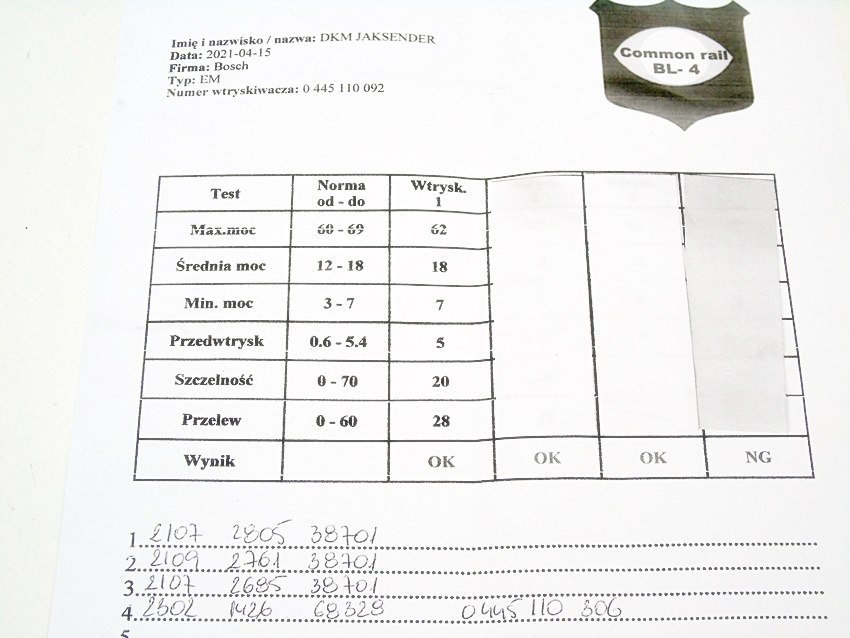 Imię i nazwisko / nazwa: DKM JAKSENDER
Data: 2021-04-15
Firma: Bosch
Typ: EM
Numer wtryskiwacza: 0 445 110 092
Common rail
BL- 4
Test Norma od - do Wtrysk. 1
Max.moc 60 - 69 62
Średnia moc 12 - 18 18
Min. moc 3 - 7 7
Przedwtrysk 0.6 - 5.4 5
Szczelność 0 - 70 20
Przelew 0 - 60 28
Wynik OK OK OK NG
1 2107 2805 38701
2 2109 2761 38701
3 2107 2685 38701
4 2302 1426 68329 0445 110 306
5